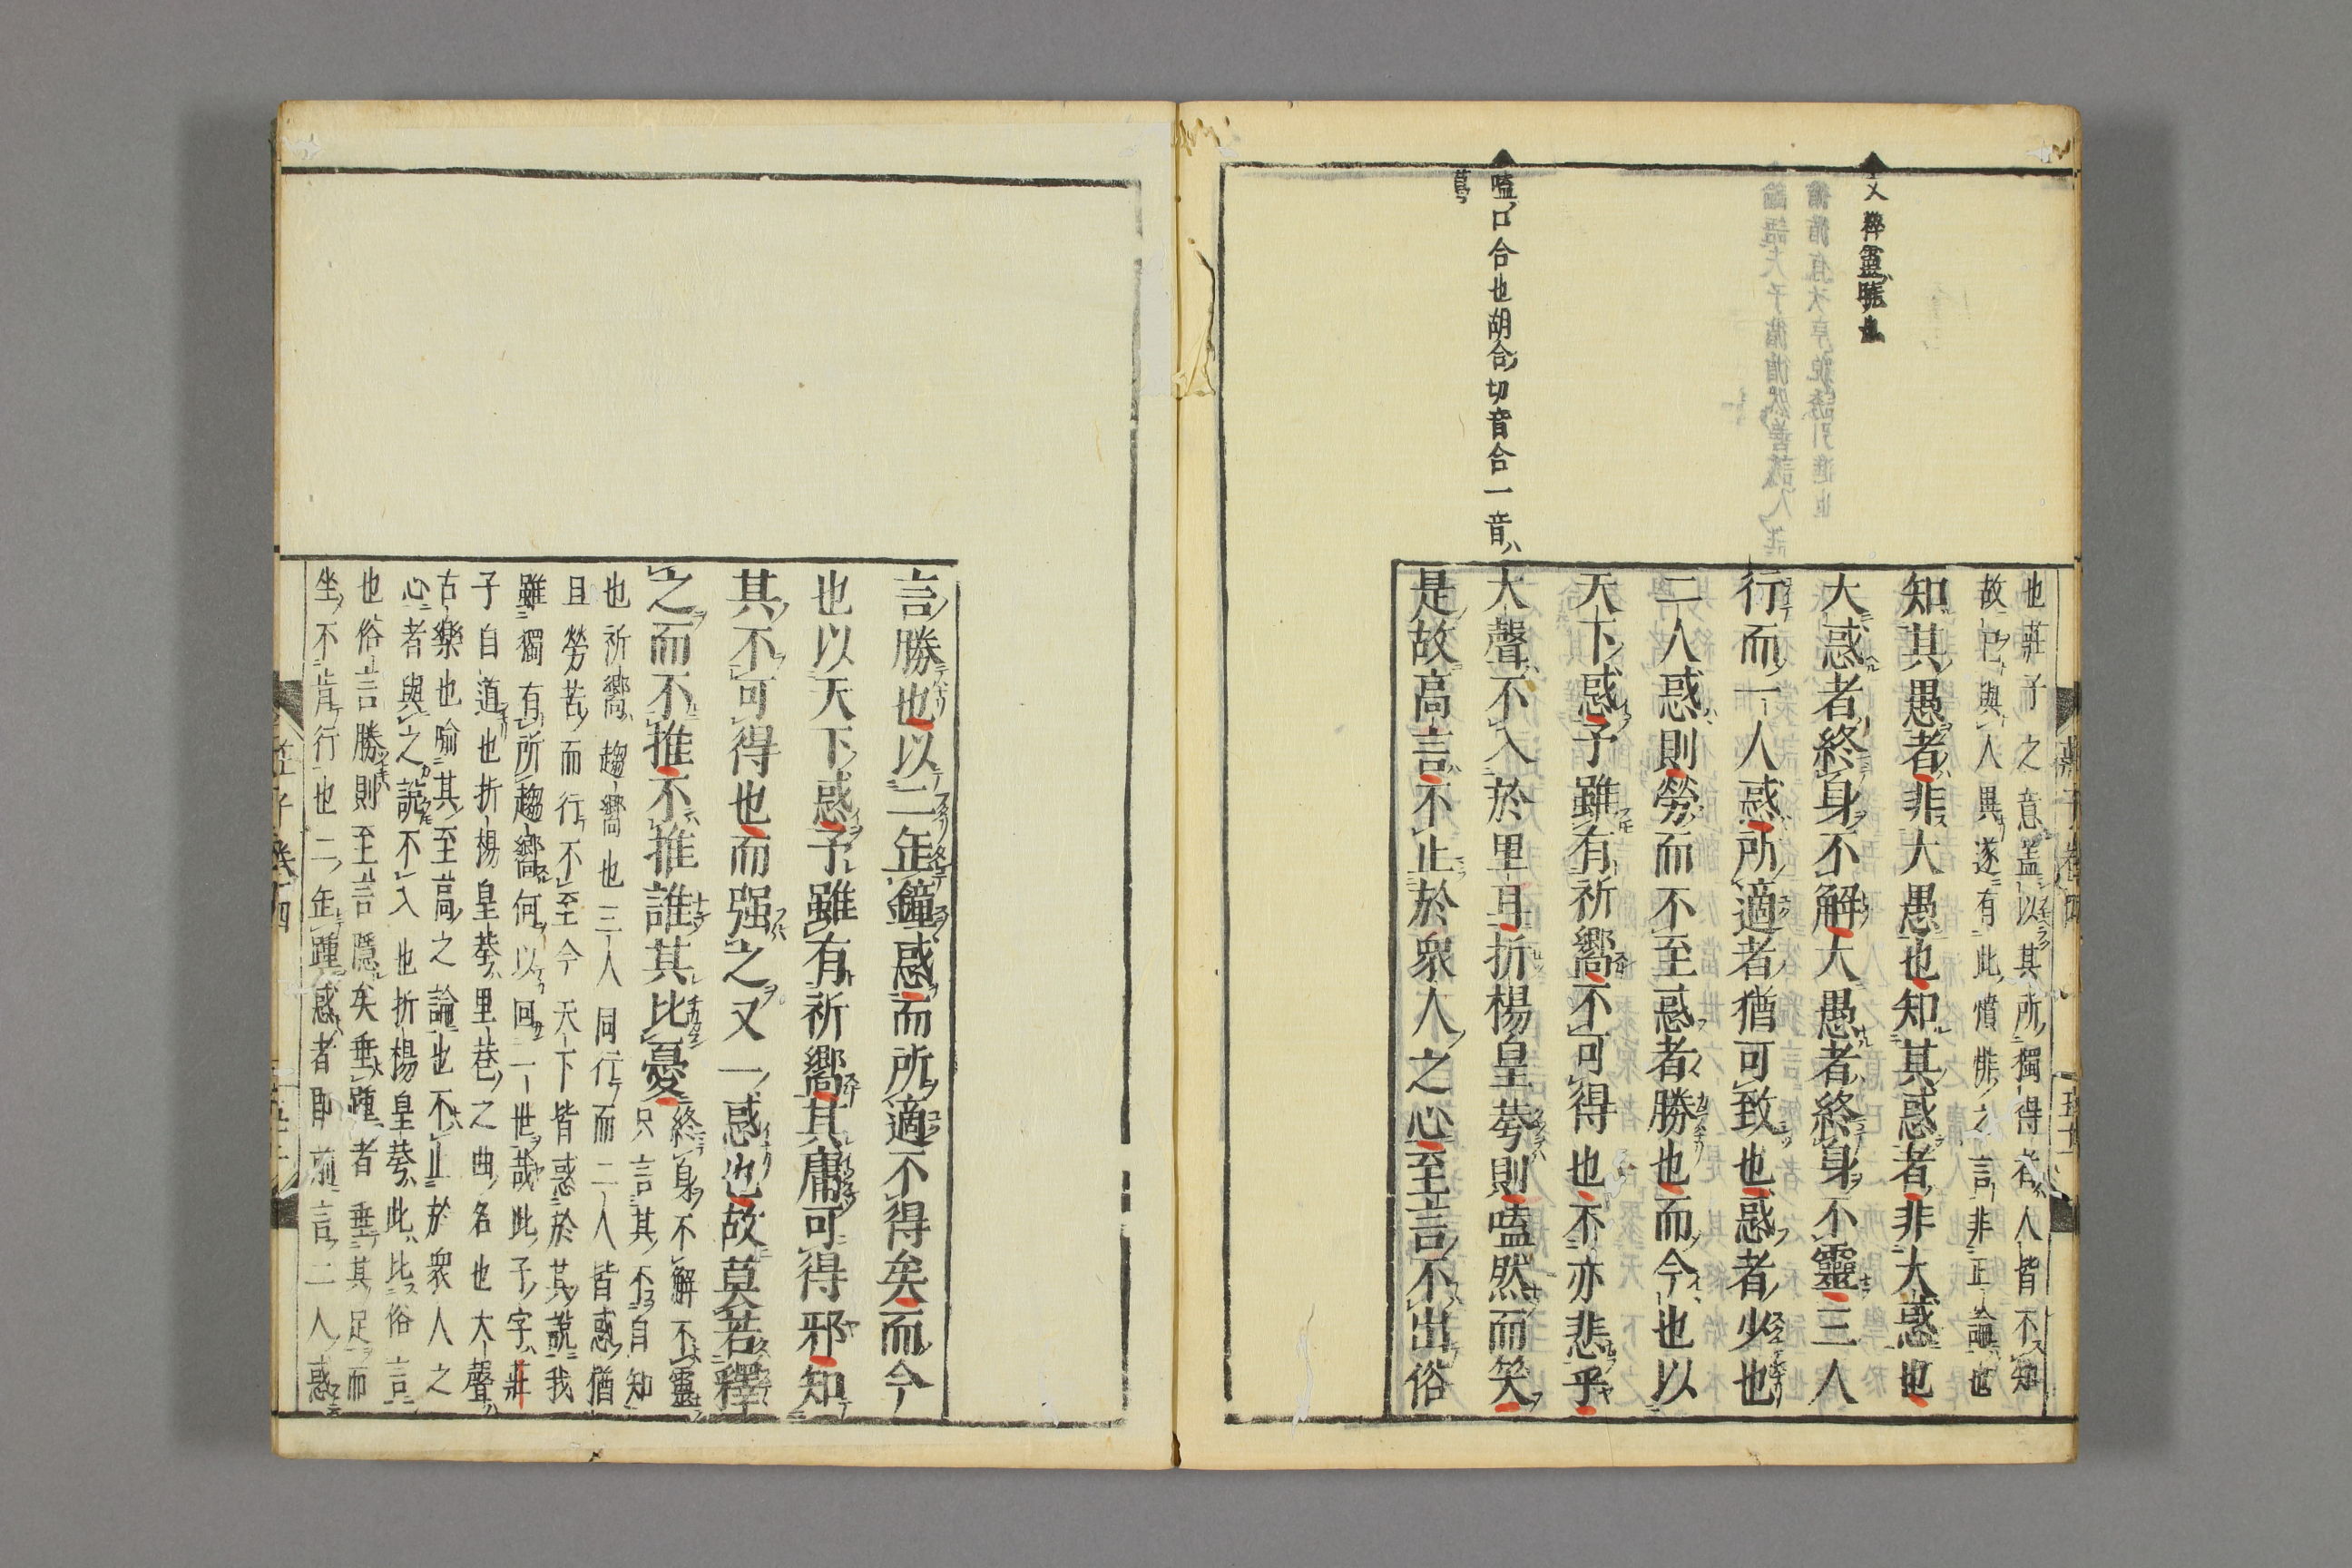 文 粹靈聴也
嗑口合也胡合切音合一音
也莊子之意蓋以其所獨得者人皆不知
故已與人異遂有此憤悱之言非正論也
知其愚者非大愚也知其惑者非大惑也
大惑者終身不解大愚者終身不靈三人
行而一人惑所適者猶可致也惑者少也
二人惑則勞而不至惑者勝也而今也以
天下惑予雖有祈嚮不可得也不亦悲乎
大聲不入於里耳折楊皇荂則嗑然而笑
是故高言不止於衆人之心至言不出俗
言勝也以二缶鐘惑而所適不得矣而今
也以天下惑予雖有祈嚮其庸可得邪知
其不可得也而强之又一惑也故莫若釋
之而不推不推誰其比憂
終身不解不靈
只言其不自知
也祈嚮趨嚮也三人同行而二人皆惑猶
且勞苦而行不至今天下皆惑於其說我
雖獨有所趨嚮何以回一世哉此予字莊
子自道也折楊皇荂里巷之曲名也大聲
古樂也喻其至高之論也不止於衆人之
心者與之說不入也折楊皇荂此比俗言
也俗言勝則至言隱矣垂踵者垂其足而
坐不肯行也二缶踵惑者即前言二人惑
莊子卷四